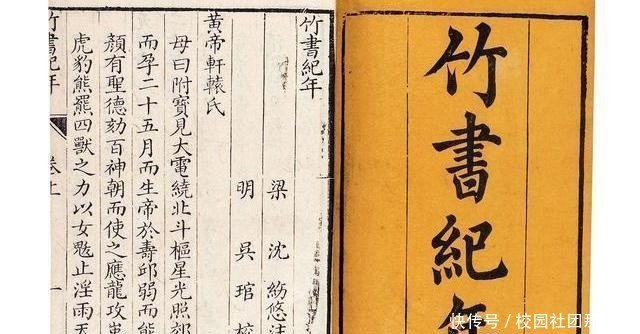 竹書紀年
竹書紀年
梁 沈 約 注
明 吳 琯 校
黃帝軒轅氏
母曰附寶見大電繞北斗樞星光照郊
而孕二十五月而生帝於壽邱弱而能
顏有聖德劾百神朝而使之應龍攻蚩
虎豹熊羆四獸之力以女魃止淫雨天
竹書紀年 卷上 一
快传号 / 校园社团